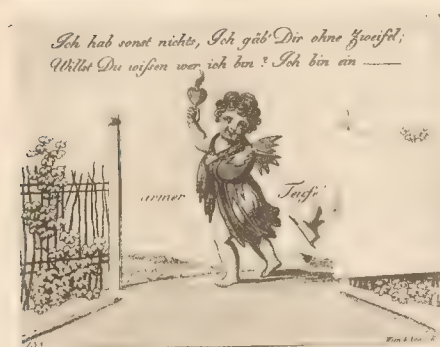 Ich hab sonst nichts, Ich gäb' Dir ohne Zweifel;
Willst Du wissen wer ich bin? Ich bin ein ——
armer Teufe